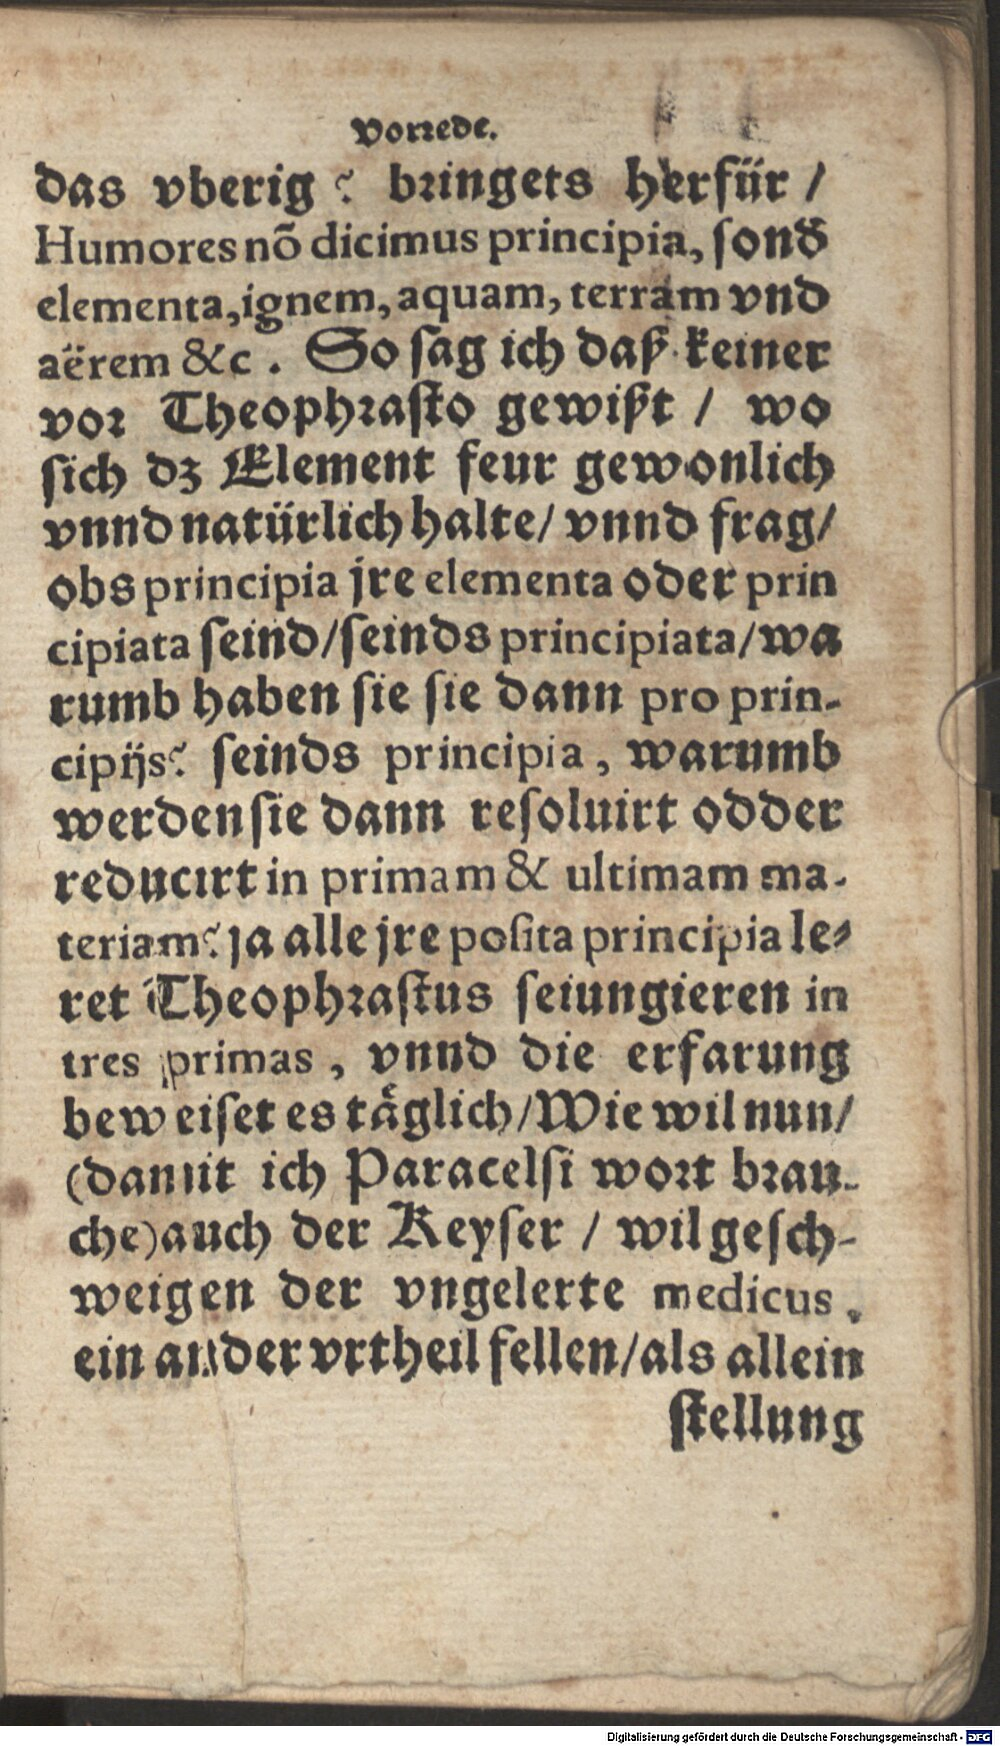 Vorrede.
das vberig? bringets herfür /
Humores nõ dicimus principia, sond̃
elementa, ignem, aquam, terram vnd
aërem &c. So sag ich daß keiner
vor Theophrasto gewißt / wo
sich dz Element feur gewonlich
vnnd natürlich halte / vnnd frag /
obs principia jre elementa oder prin
cipiata seind / seinds principiata / wa
rumb haben sie sie dann pro prin-
cipijs? seinds principia, warumb
werden sie dann resoluirt odder
reducirt in primam & ultimam ma-
teriam? ja alle jre posita principia le-
ret Theophrastus seiungieren in
tres primas, vnnd die erfarung
beweiset es täglich / Wie wil nun /
(damit ich Paracelsi wort brau-
che) auch der Keyser / wil gesch-
weigen der vngelerte medicus.
ein ander vrtheil fellen / als allein
stellung
Digitalisierung gefördert durch die Deutsche Forschungsgemeinschaft - DFG